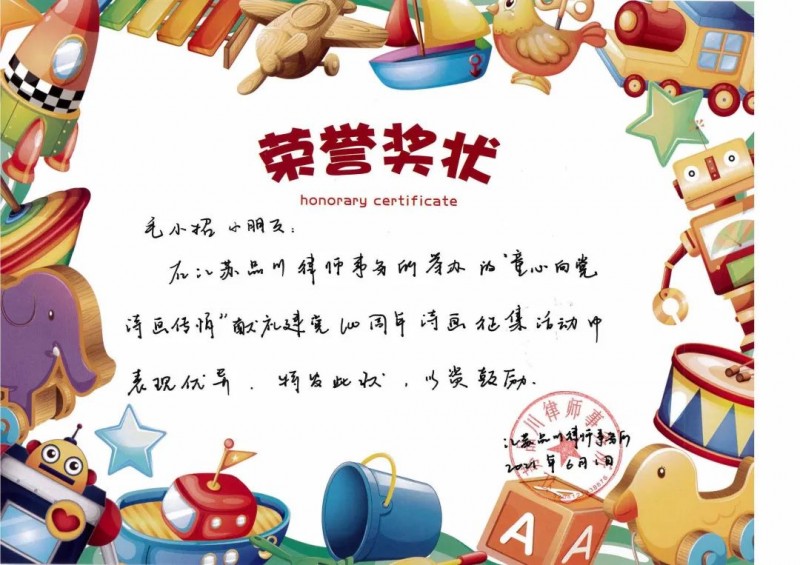 荣誉奖状
honorary certificate
毛小招 小朋友：
在江苏品川律师事务所举办的“童心向党
诗画传情”献礼建党100周年诗画征集活动中
表现优异，特发此状，以资鼓励.
江苏品川律师事务所
2021年6月1日
A A